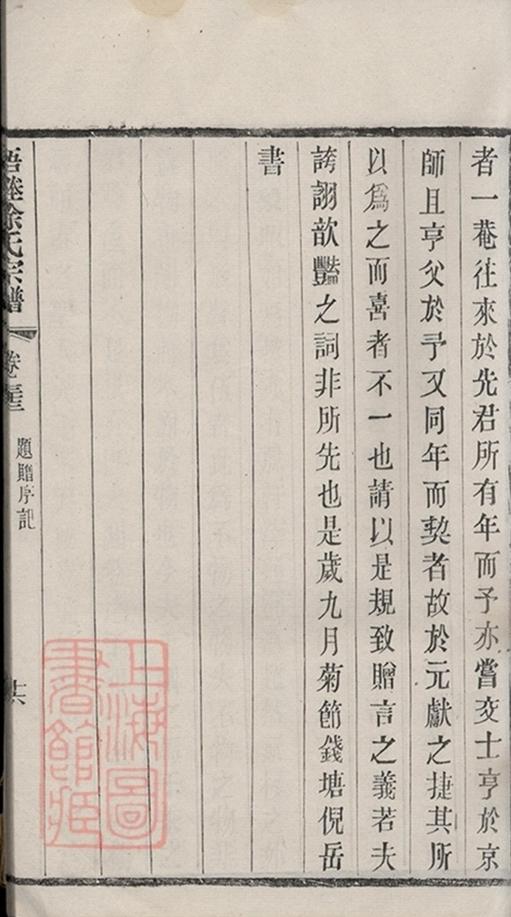 者一菴往來於先君所有年而予亦嘗交士亨於京
師且亨父於予又同年而契者故於元獻之捷其所
以爲之而喜者不一也請以是規致贈言之義若夫
誇詡歆豔之詞非所先也是歲九月菊節錢塘倪岳
書
徐氏宗譜
卷
題贈序記
上海圖
書館藏